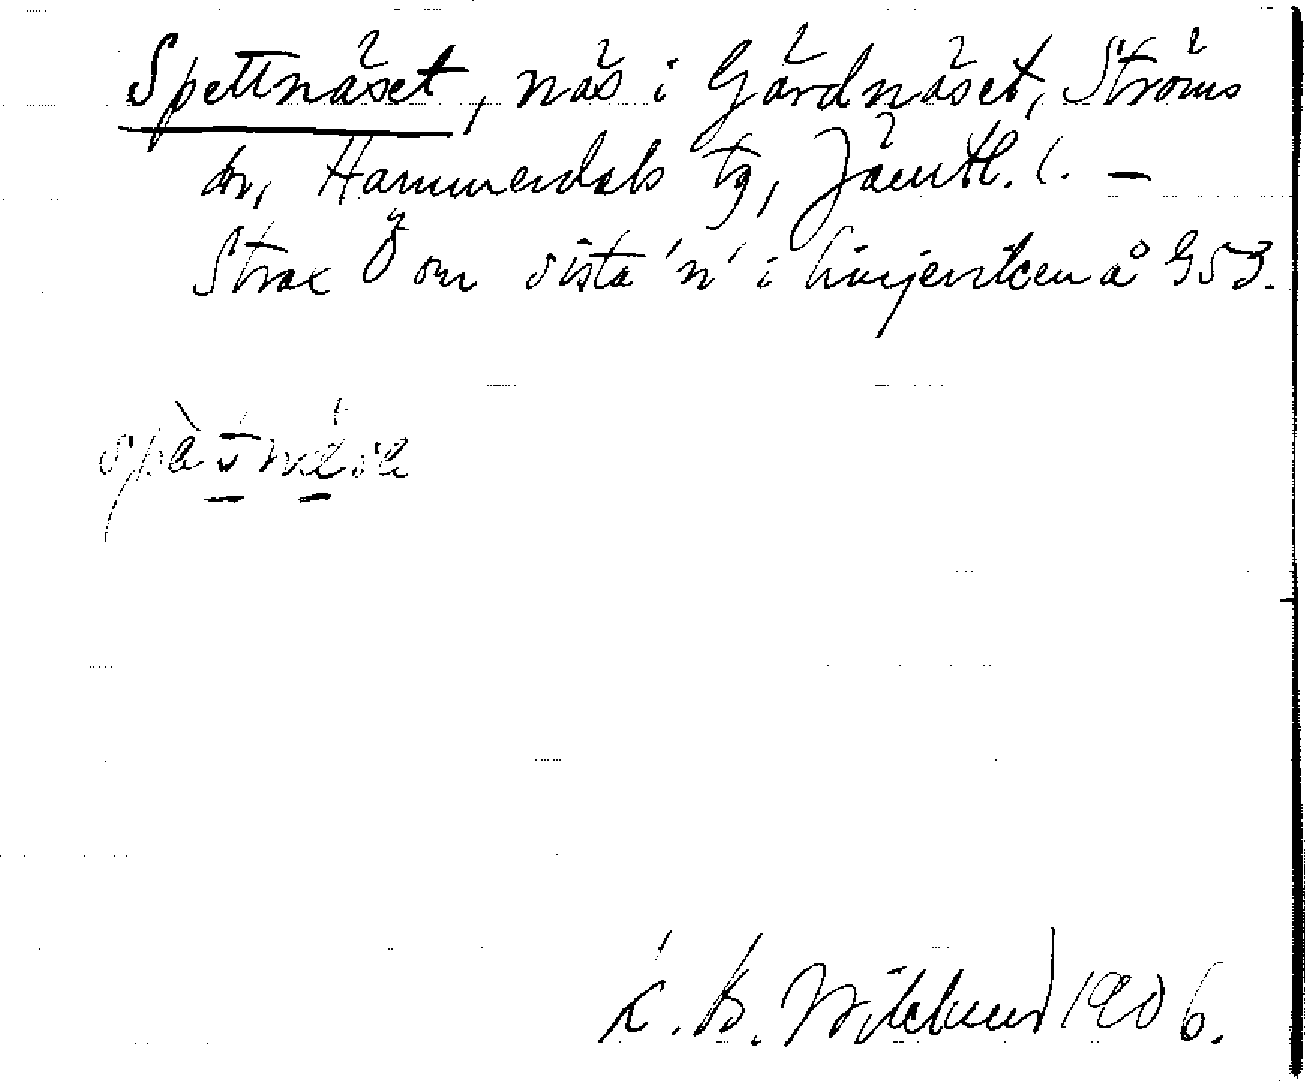 Spettnäset, näs i Gårdnäset, Ströms
sn, Hammerdals tg, Jämtl. l. –
Strax Ö om sista 'n' i linjeviken å G53.
K. B. Wiklund 1906.